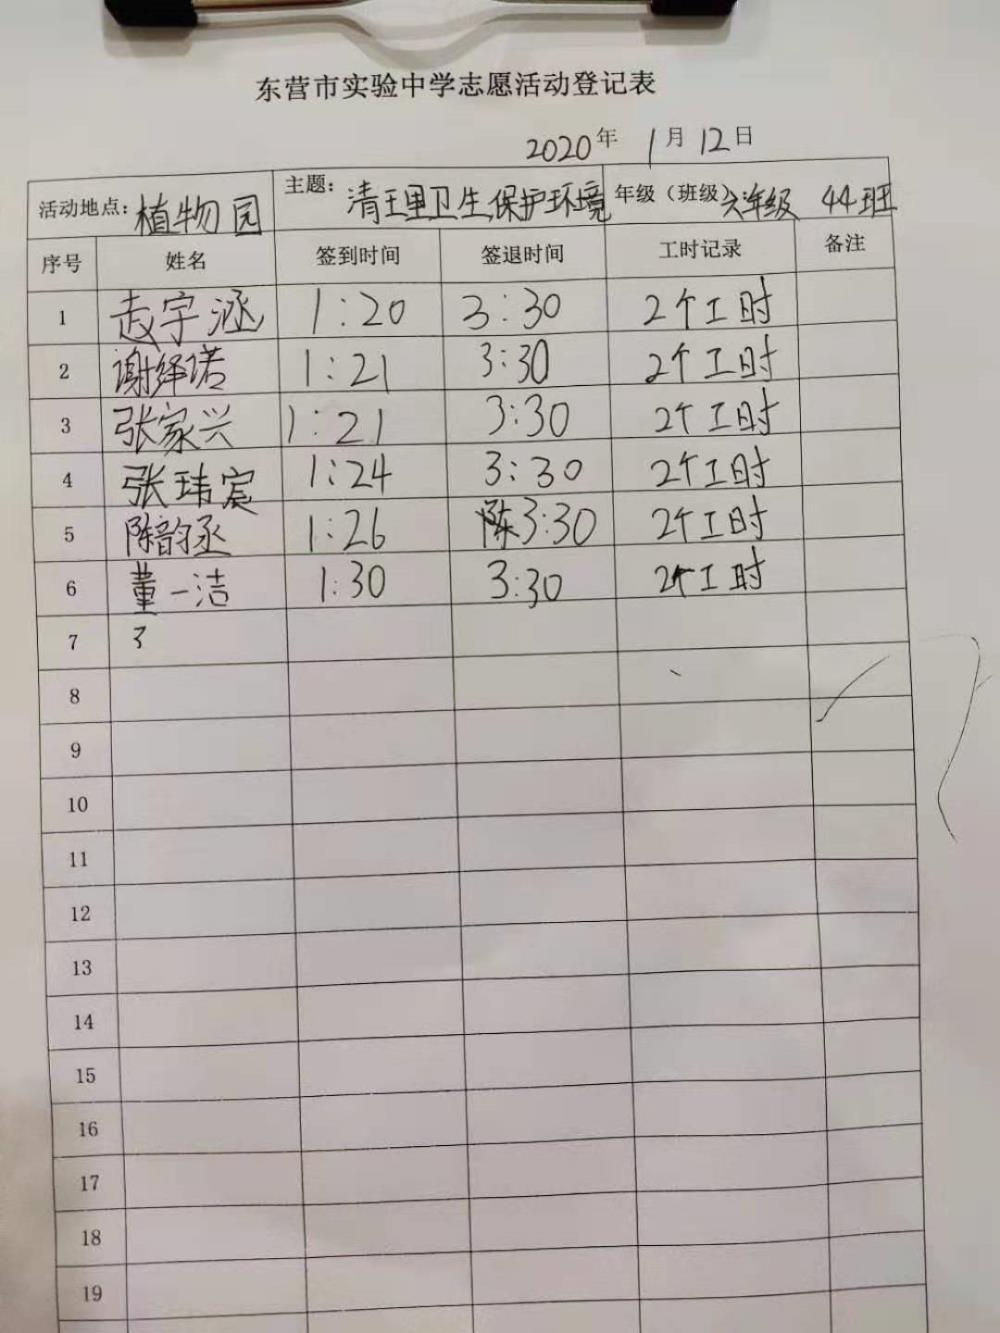 东营市实验中学志愿活动登记表
2020年 1月12日
活动地点: 植物园 主题: 清理卫生,保护环境 年级（班级）六年级 44班
序号 姓名 签到时间 签退时间 工时记录 备注
1 赵宇涵 1:20 3:30 2个工时
2 谢绎诺 1:21 3:30 2个工时
3 张家兴 1:21 3:30 2个工时
4 张玮宸 1:24 3:30 2个工时
5 陈韵丞 1:26 陈3:30 2个工时
6 董一洁 1:30 3:30 2个工时
7
8
9
10
11
12
13
14
15
16
17
18
19